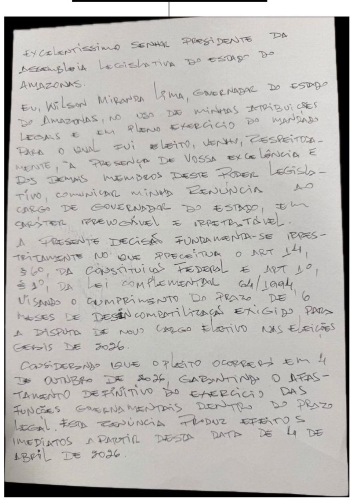 EXCELENTÍSSIMO SENHOR PRESIDENTE DA
ASSEMBLEIA LEGISLATIVA DO ESTADO DO
AMAZONAS.
EU, WILSON MIRANDA LIMA, GOVERNADOR DO ESTADO
DO AMAZONAS, NO USO DE MINHAS ATRIBUIÇÕES
LEGAIS E EM PLENO EXERCÍCIO DO MANDATO
PARA O QUAL FUI ELEITO, VENHO, RESPEITOSA-
MENTE, À PRESENÇA DE VOSSA EXCELÊNCIA E
DOS DEMAIS MEMBROS DESTE PODER LEGISLA-
TIVO, COMUNICAR MINHA RENÚNCIA AO
CARGO DE GOVERNADOR DO ESTADO, EM
CARÁTER IRREVOGÁVEL E IRRETRATÁVEL.
A PRESENTE DECISÃO FUNDAMENTA-SE IRRES-
TRITAMENTE NO QUE PRECEITUA O ART 14,
§ 6º, DA CONSTITUIÇÃO FEDERAL E ART 1º,
DA LEI COMPLEMENTAR 64/1994,
VISANDO O CUMPRIMENTO DO PRAZO DE 6
MESES DE DESINCOMPATIBILIZAÇÃO EXIGIDO PARA
A DISPUTA DE NOVO CARGO ELETIVO NAS ELEIÇÕES
GERAIS DE 2026.
CONSIDERANDO QUE O PLEITO OCORRERÁ EM 4
DE OUTUBRO DE 2026, GARANTINDO O AFAS-
TAMENTO DEFINITIVO DO EXERCÍCIO DAS
FUNÇÕES GOVERNAMENTAIS DENTRO DO PRAZO
LEGAL. ESTA RENÚNCIA PRODUZ EFEITOS
IMEDIATOS A PARTIR DESTA DATA DE 4 DE
ABRIL DE 2026.